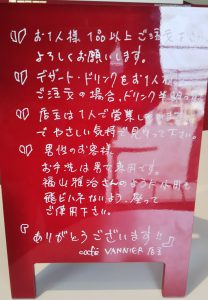 お1人様 1品以上ご注文
よろしくお願いします。
デザート・ドリンクをお1人
ご注文の場合、ドリンク半
店主は1人で営業し
やさしい気持で見守って下さい。
男性のお客様、
お手洗は男女兼用です。
福山雅治さんのように使用
飛ビハネないよう、座って
ご使用下さい。
『ありがとうございます!!』
café VANNIER 店主